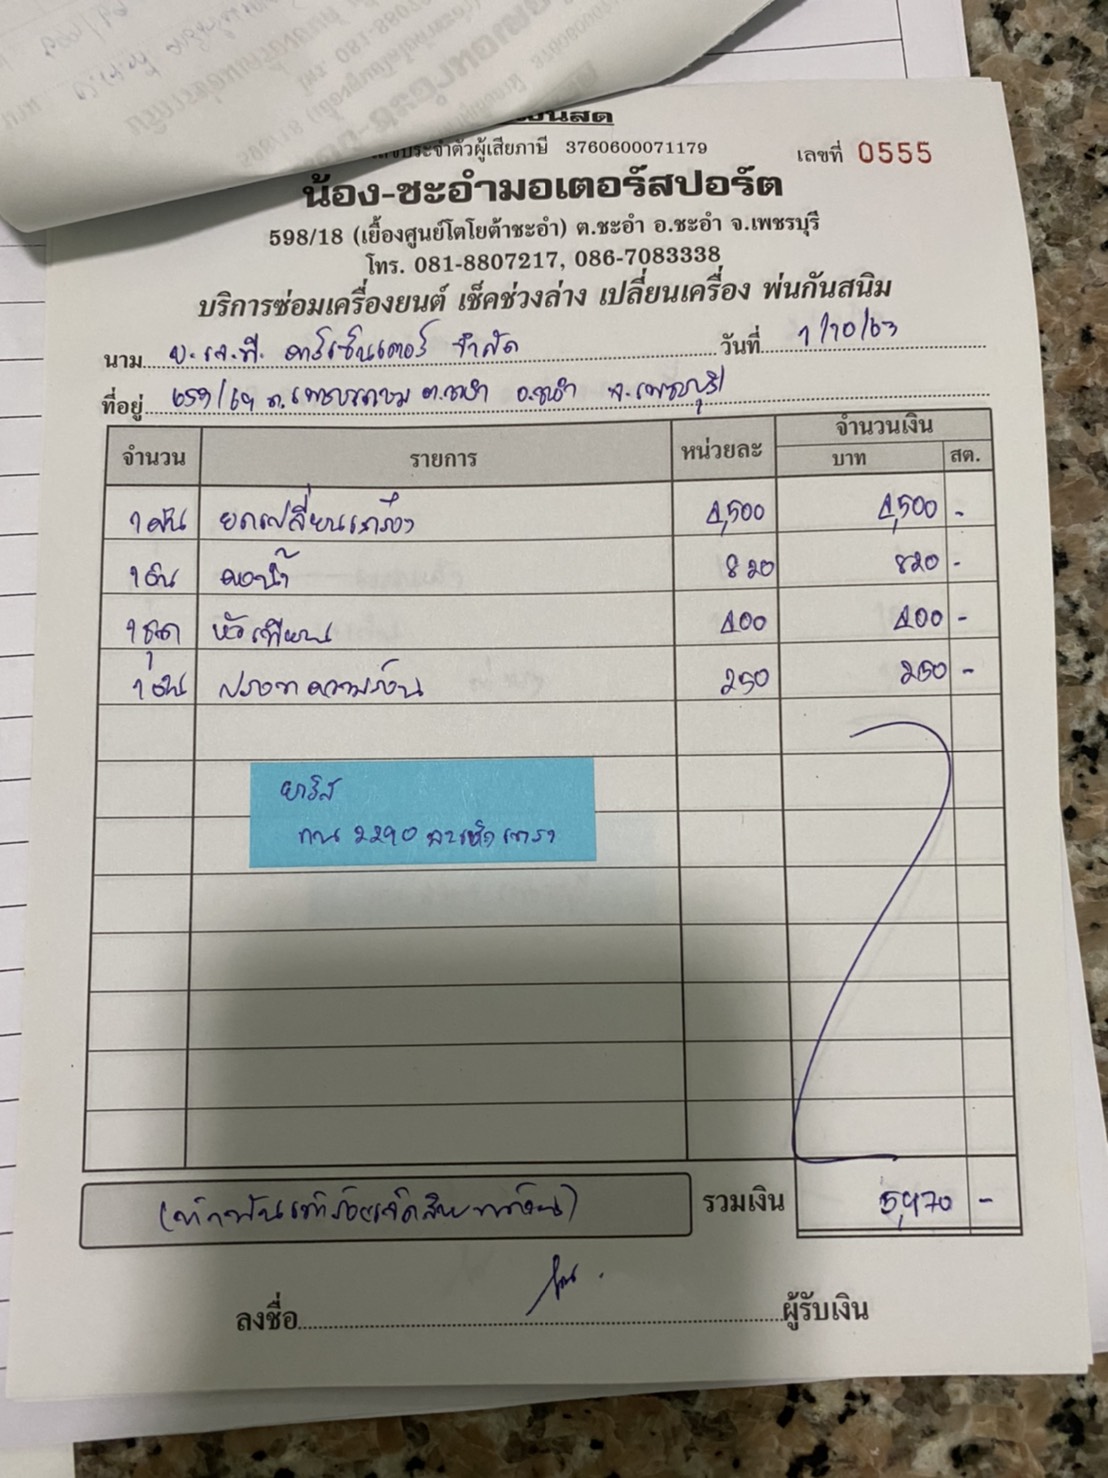 เลขประจำตัวผู้เสียภาษี 3760600071179
เลขที่ 0555
น้อง-ชะอำมอเตอร์สปอร์ต
598/18 (เยื้องศูนย์โตโยต้าชะอำ) ต.ชะอำ อ.ชะอำ จ.เพชรบุรี
โทร. 081-8807217, 086-7083338
บริการซ่อมเครื่องยนต์ เช็คช่วงล่าง เปลี่ยนเครื่อง พ่นกันสนิม
นาม บ.เจ.พี. คาร์เซ็นเตอร์ จำกัด วันที่ 1/10/63
ที่อยู่ 659/64 ถ.เพชรเกษม ต.ชะอำ อ.ชะอำ จ.เพชรบุรี
จำนวน รายการ หน่วยละ จำนวนเงิน
บาท สต.
1คัน ยกเปลี่ยนเครื่อง 4,500 4,500 -
1อัน คอน้ำ 820 820 -
1ชุด หัวเทียน 400 400 -
1อัน 250 250 -
ยาริส
ทน 2290
(ห้าพันเก้าร้อยเจ็ดสิบบาทถ้วน) รวมเงิน 5,970 -
ลงชื่อ ผู้รับเงิน